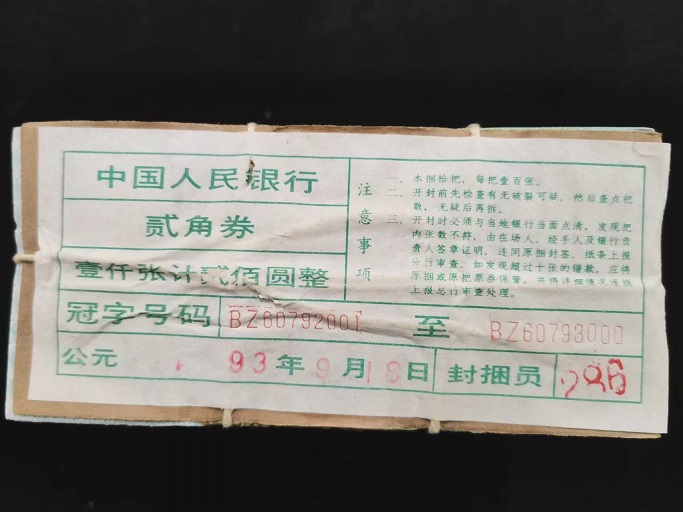 中国人民银行
贰角券
壹仟张计贰佰圆整
冠字号码 BZ60792001 至 BZ60793000
公元 93年9月18日 封捆员 286
注意事项
一、本捆拾把，每把壹百张。
二、开封前先检查有无破裂可疑，然后查点把
数，无疑后再拆。
三、开封时必须与当地银行当面点清，发现把
内张数不符，由在场人、经手人及银行负
责人签章证明，连同原捆封签、纸条上报
分行审查。如发现超过十张的错款，应将
原捆或原把票券保管，并将详细情况逐级
上报总行审查处理。